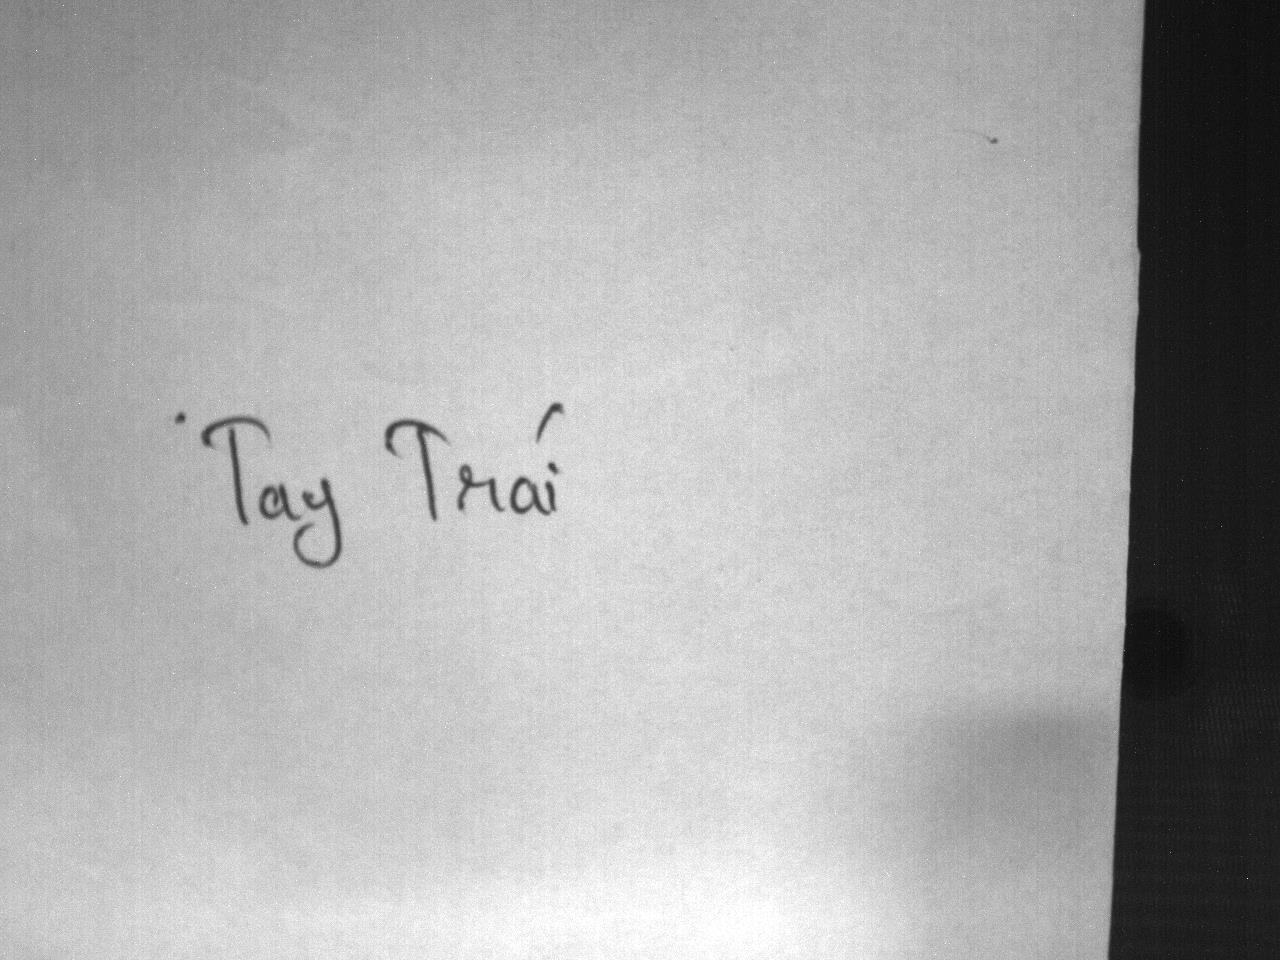 Tay Trái